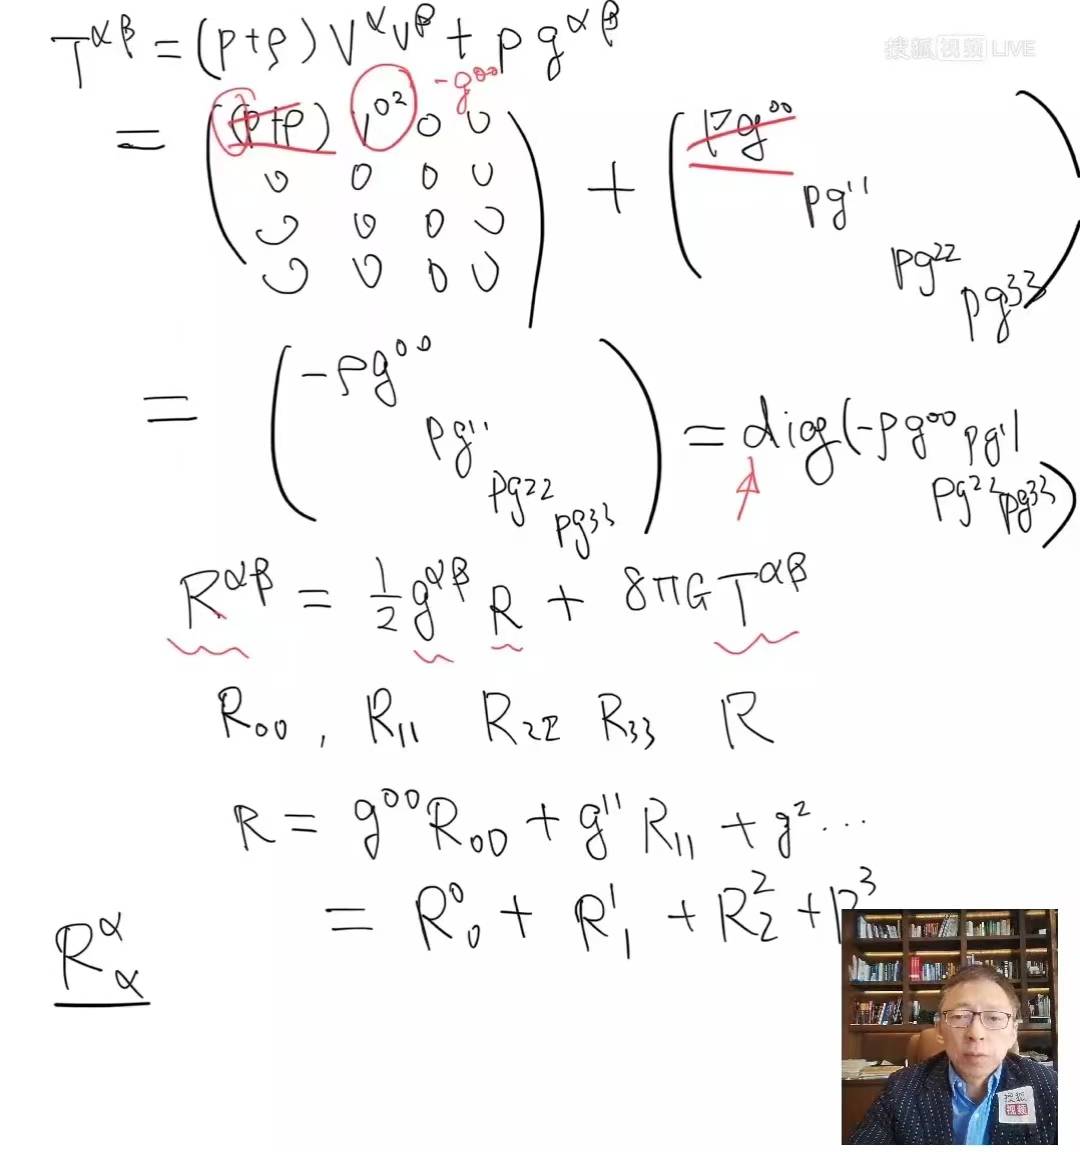 搜狐视频 LIVE
T^{αβ} = (p+ρ) V^α V^β + p g^{αβ}
-g^{00}
= ( (p+ρ) V^{02} 0 0 ) + ( pg^{00}
0 0 0 0 pg^{11}
0 0 0 0 pg^{22}
0 0 0 0 pg^{33} )
= ( -ρg^{00} pg^{11} pg^{22} pg^{33} ) = diag(-ρg^{00} pg^{11}
pg^{22} pg^{33})
R^{αβ} = 1/2 g^{αβ} R + 8πG T^{αβ}
R_{00} , R_{11} R_{22} R_{33} R
R = g^{00} R_{00} + g^{11} R_{11} + g^2 ...
= R^0_0 + R^1_1 + R^2_2 + R^3
R^α_α
搜狐
视频